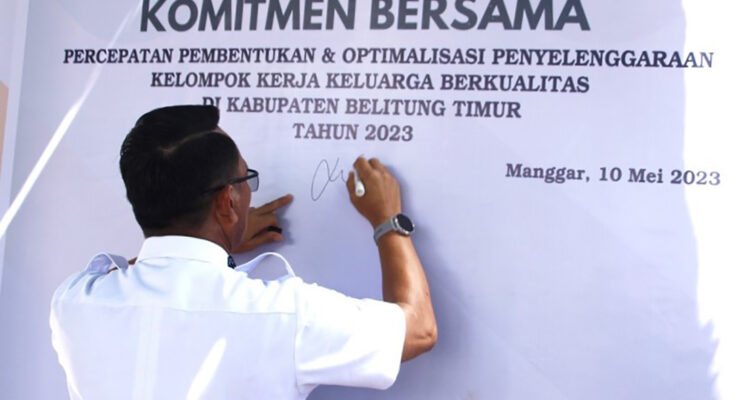 KOMITMEN BERSAMA
PERCEPATAN PEMBENTUKAN & OPTIMALISASI PENYELENGGARAAN
KELOMPOK KERJA KELUARGA BERKUALITAS
DI KABUPATEN BELITUNG TIMUR
TAHUN 2023
Manggar, 10 Mei 2023